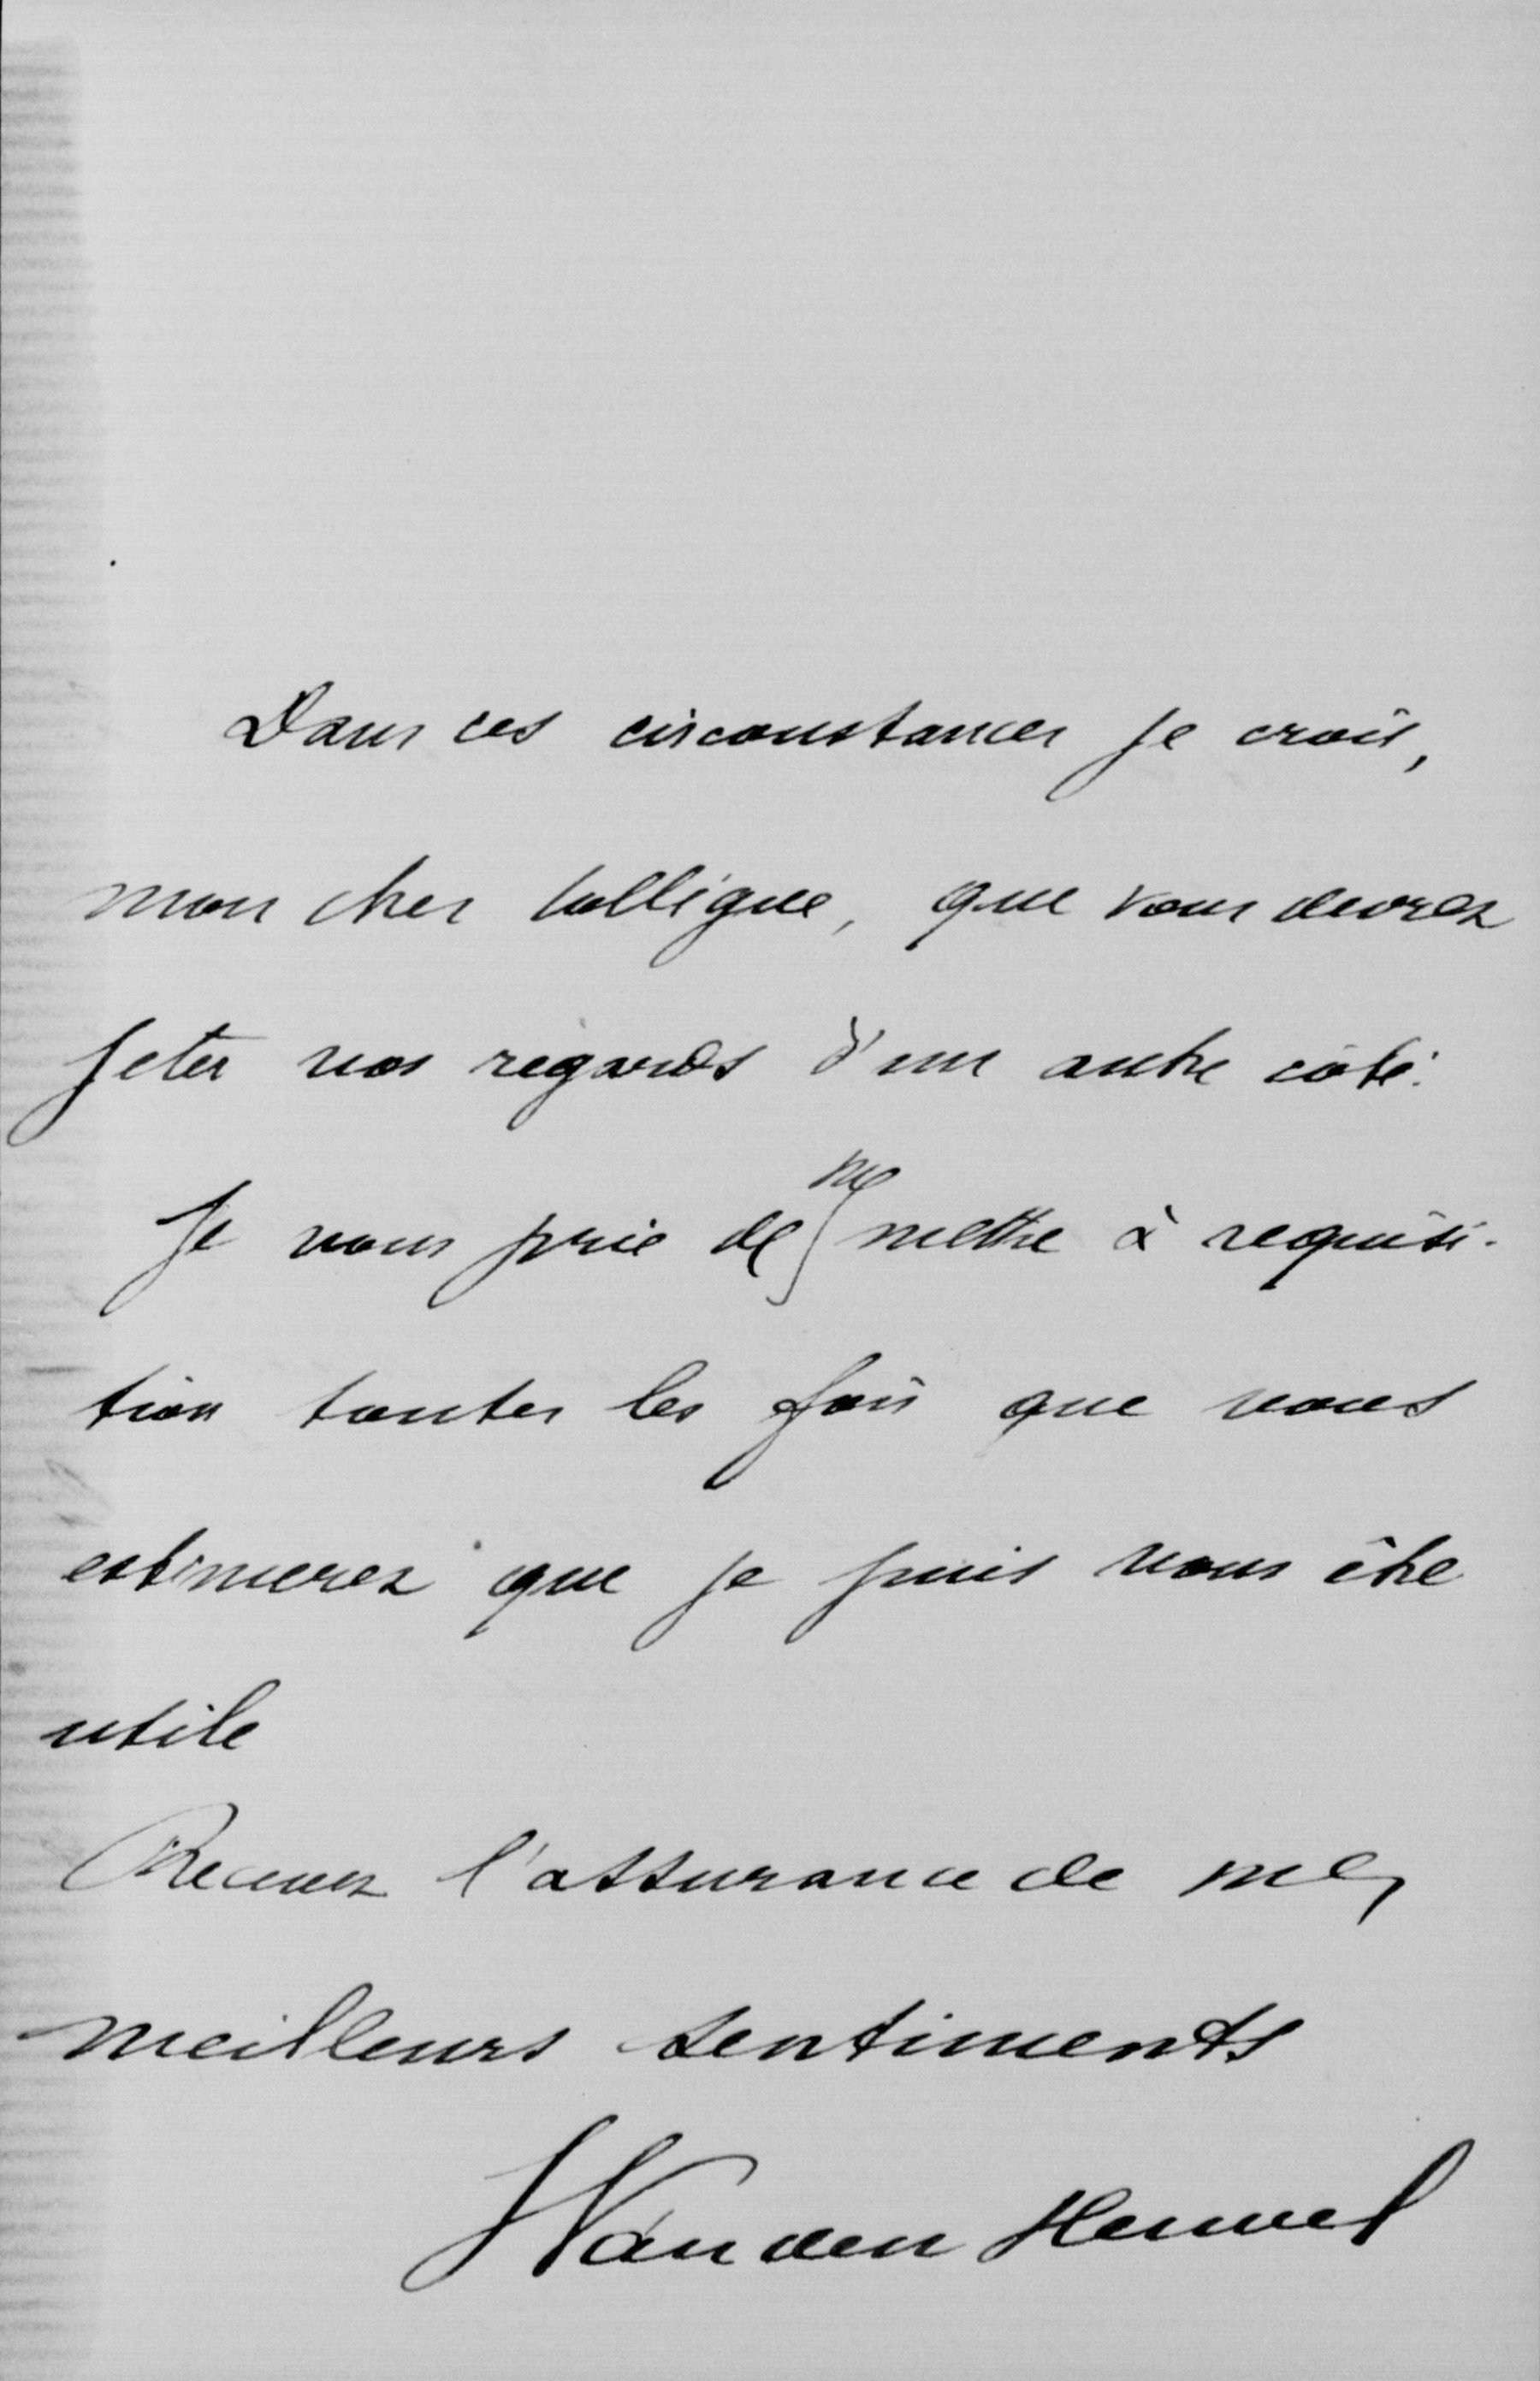 Dans ces circonstances je crois,
mon cher collègue, que vous devrez
jeter vos regards d'un autre côté.
Je vous prie de me mettre à requisi-
tion toutes les fois que vous
estimerez que je puis vous être
utile
Recevez l'assurance de mes
meilleurs sentiments
J Van den Heuvel